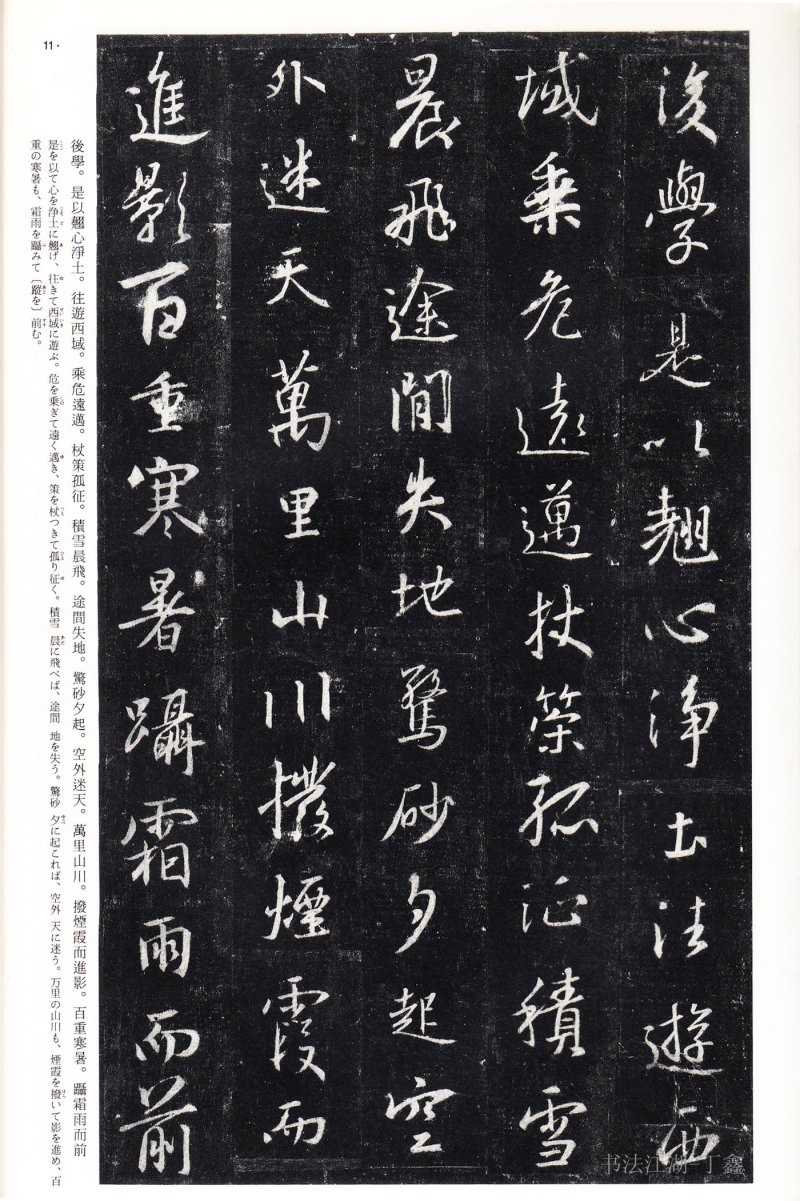 後學是以翹心淨土往遊西
域乘危遠邁杖策孤征積雪
晨飛途間失地驚砂夕起空
外迷天萬里山川撥煙霞而
進影百重寒暑躡霜雨而前
後學。是以翹心淨土。往遊西域。乘危遠邁。杖策孤征。積雪晨飛。途間失地。驚砂夕起。空外迷天。萬里山川。撥煙霞而進影。百重寒暑。躡霜雨而前
是を以て心を浄土に翹げ、往きて西域に遊ぶ。危を乗ぎて遠く邁き、策を杖つきて孤り征く。積雪 晨に飛べば、途間 地を失う。驚砂 夕に起これば、空外 天に迷う。万里の山川も、煙霞を撥いて影を進め、百
重の寒暑も、霜雨を躡みて〔蹤を〕前む。
11・
书法江湖-丁鑫